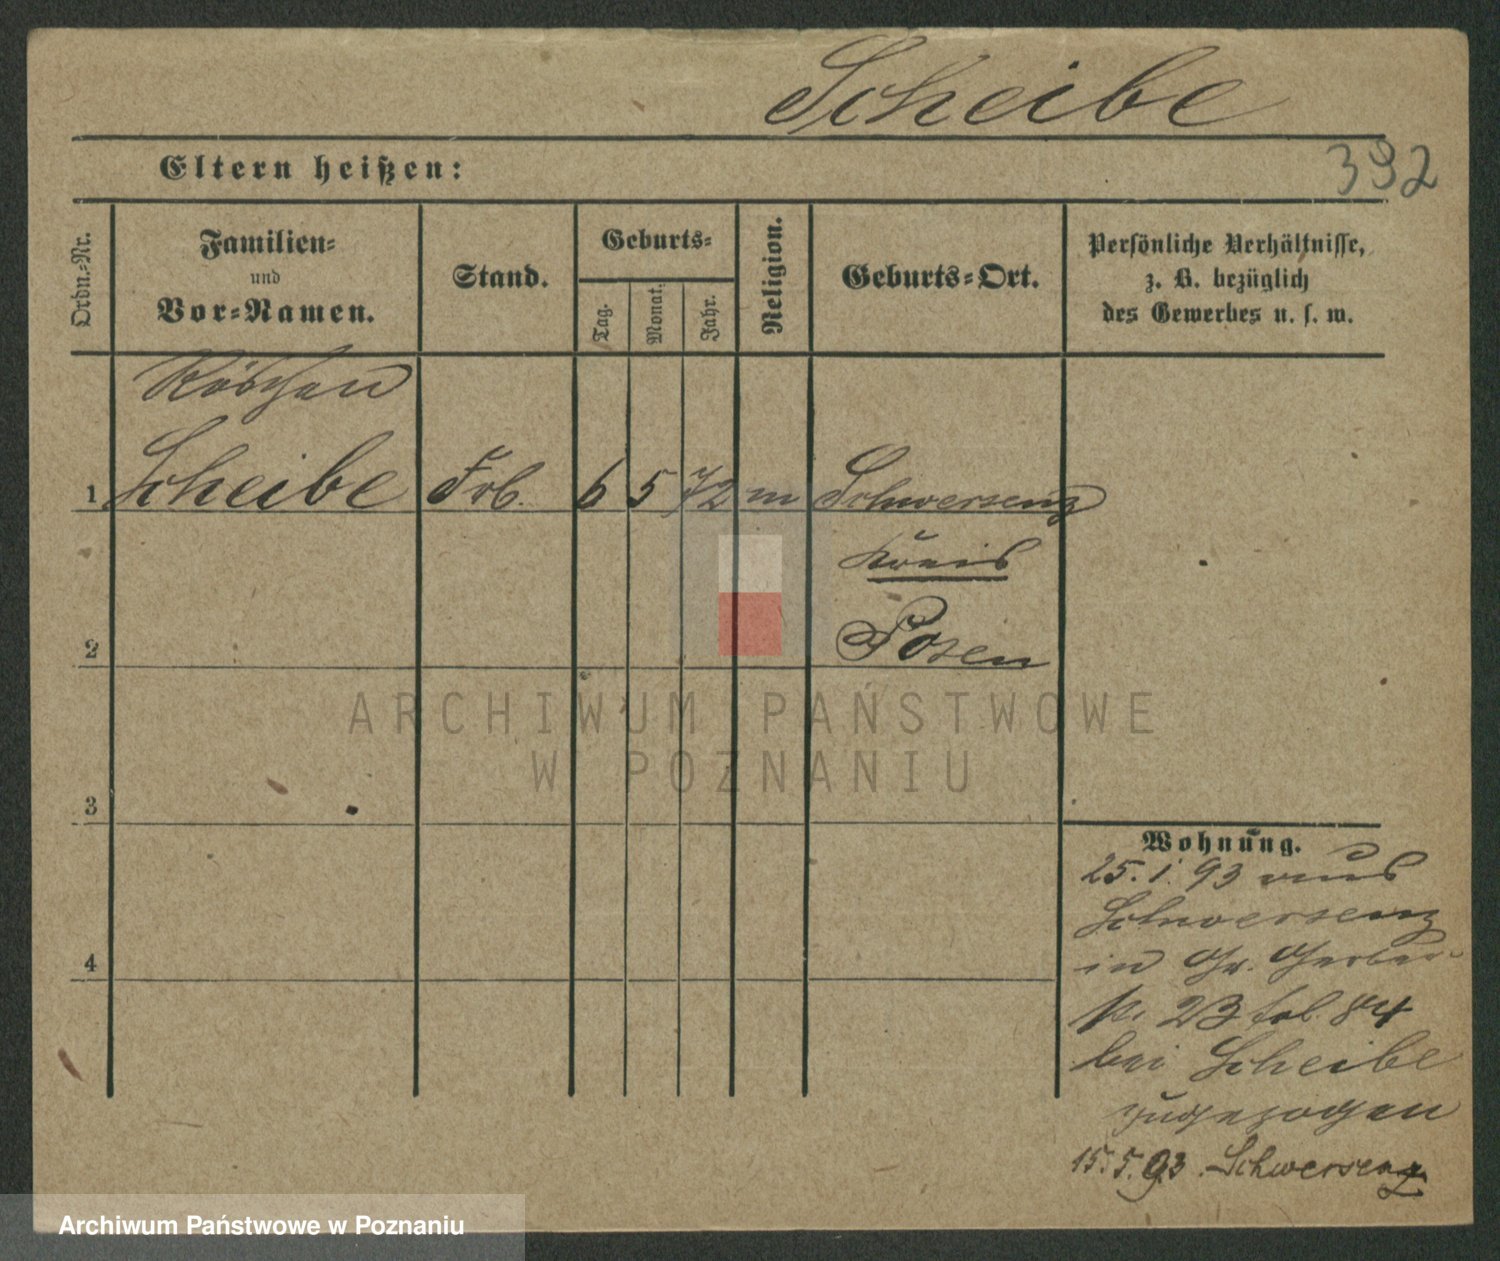 Scheibe
392
Eltern heißen:
Ordn.-Nr.
Familien-
und
Vor-Namen.
Stand.
Geburts-
Tag.
Monat.
Jahr.
Religion.
Geburts-Ort.
Persönliche Verhältnisse,
z. B. bezüglich
des Gewerbes u. s. w.
Röschen
1 Scheibe Frl. 6 5 72 m Schwersenz
Kreis
2 Posen
ARCHIWUM PAŃSTWOWE
W POZNANIU
3
4
Wohnung.
25. 1. 93 aus
Schwersenz
in Gr. Gerber-
23 fol. 84
bei Scheibe
zugezogen
15. 5. 93. Schwersenz
Archiwum Państwowe w Poznaniu